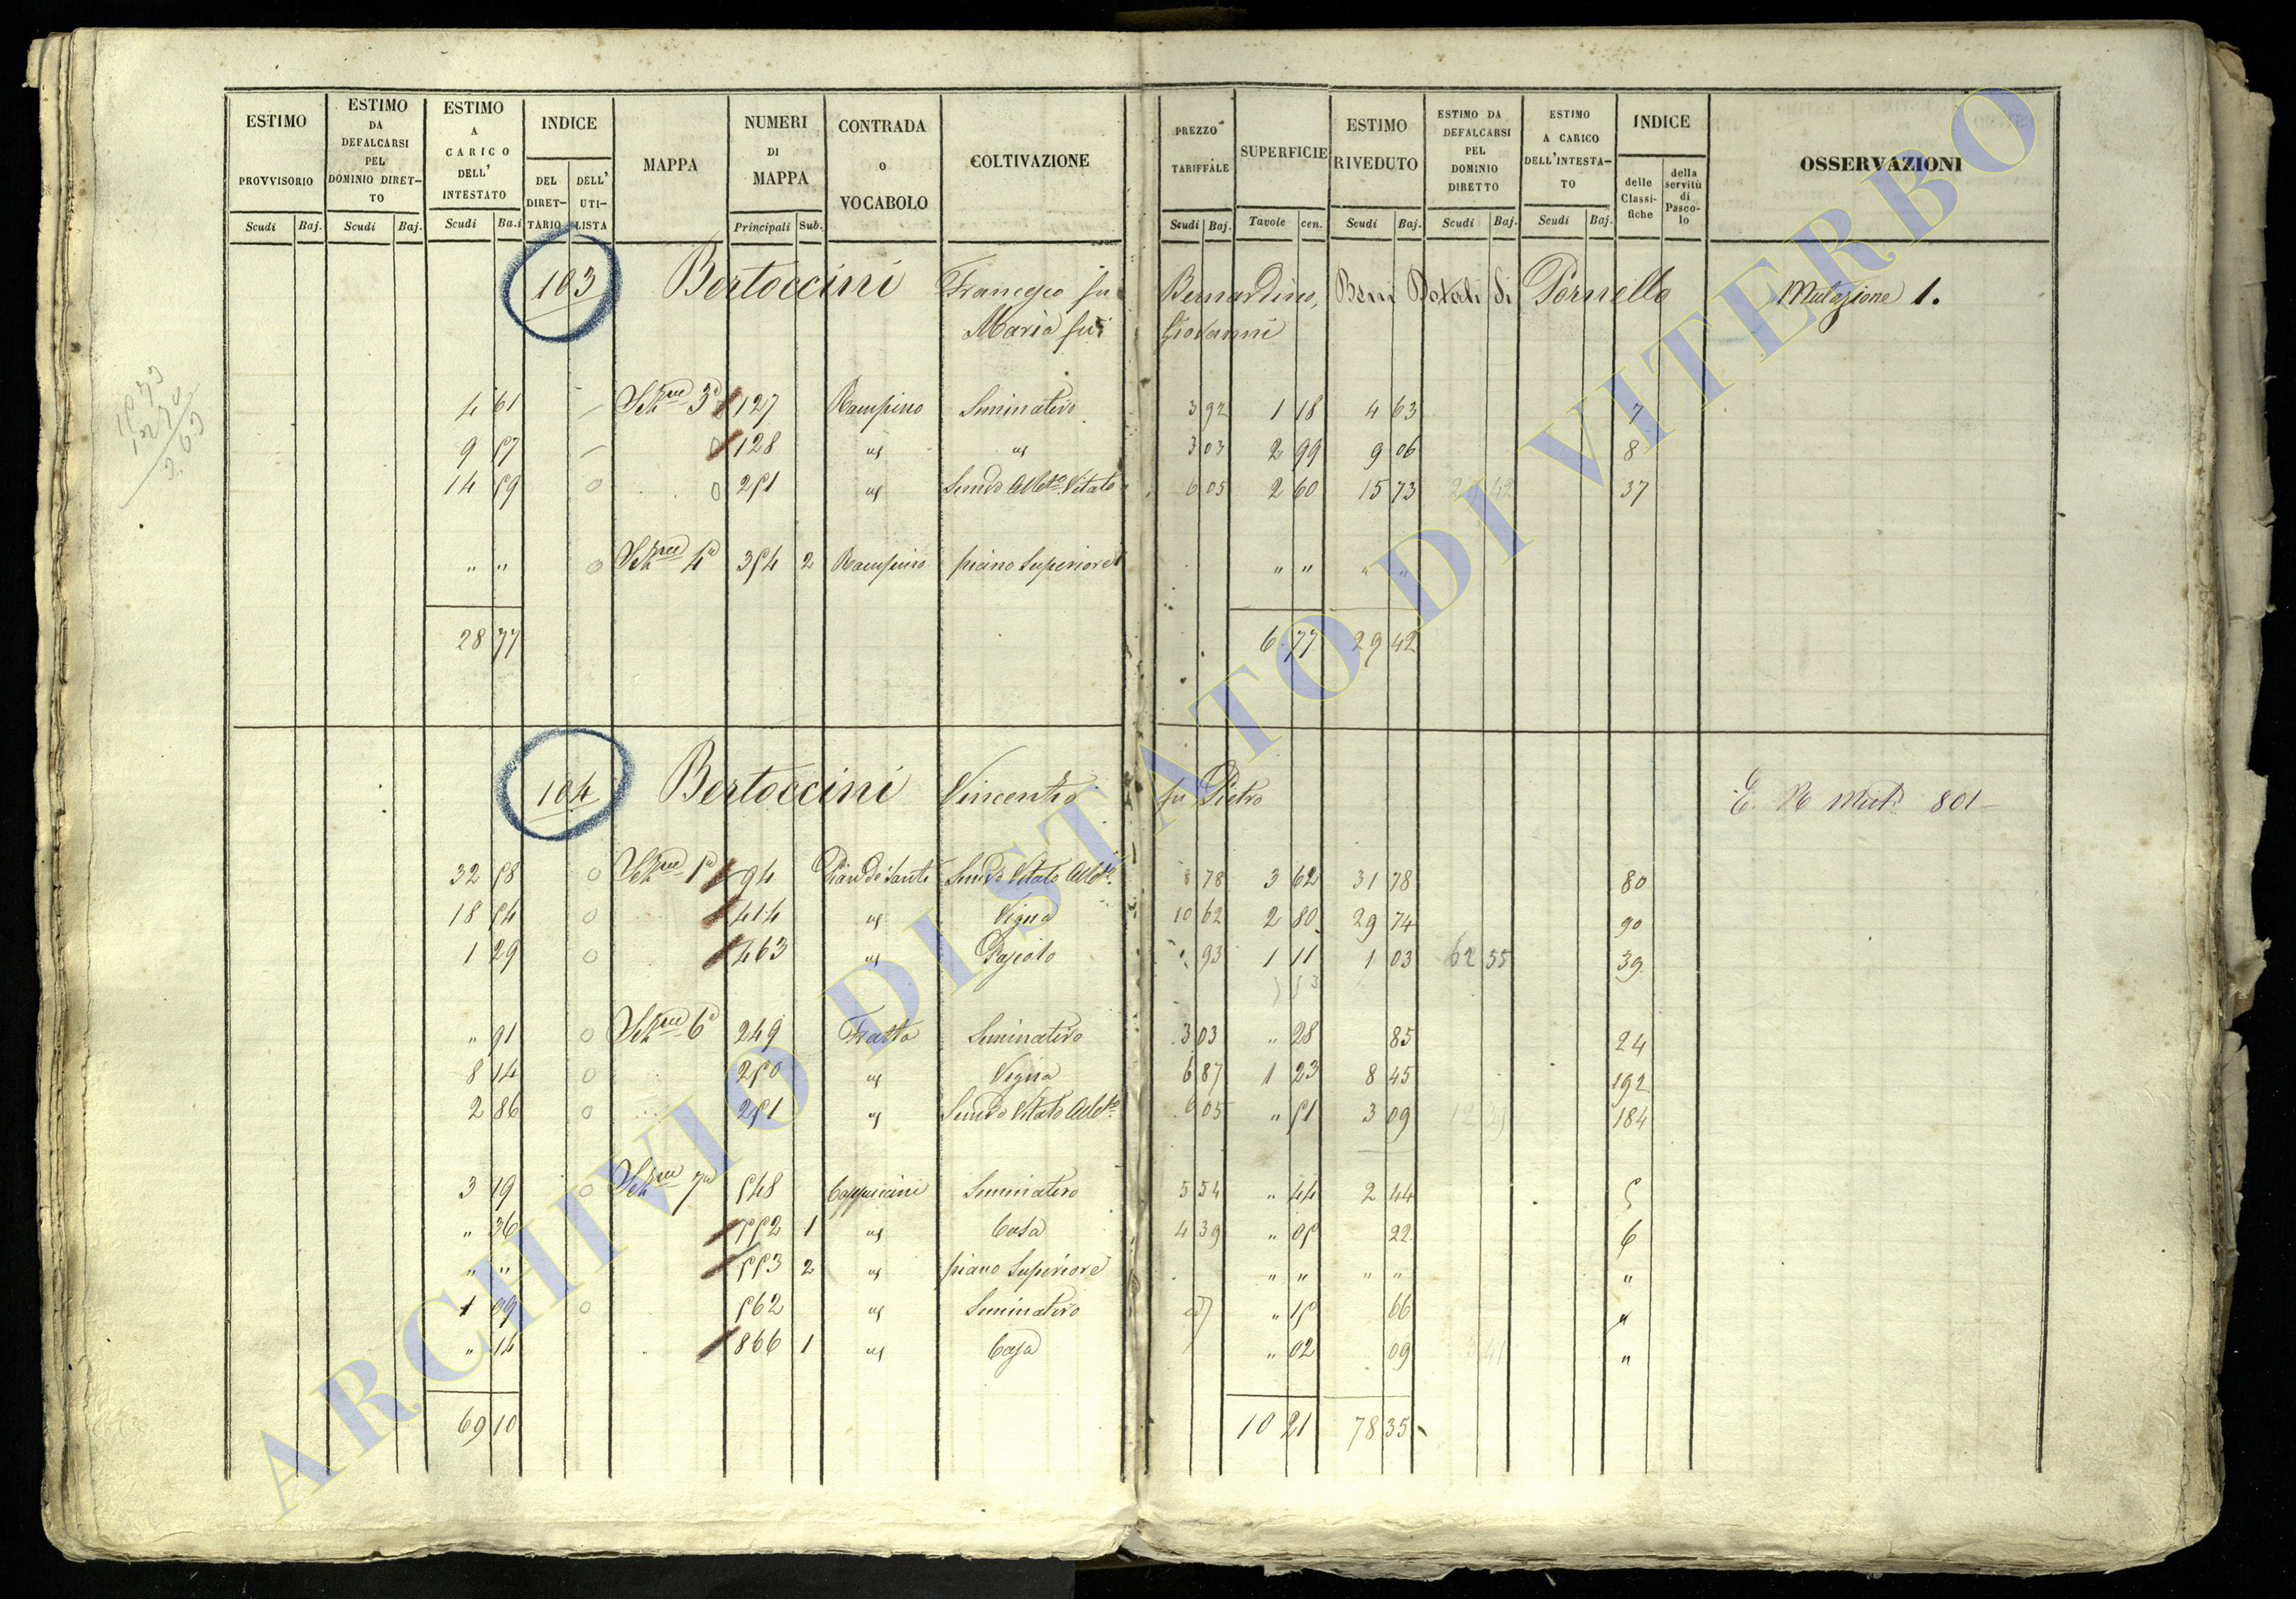 ESTIMO PROVVISORIO Scudi Baj.
ESTIMO DA DEFALCARSI PEL DOMINIO DIRET-TO Scudi Baj.
ESTIMO A CARICO DELL' INTESTATO Scudi Ba.i
INDICE DEL DIRET-TARIO DELL' UTI-LISTA
MAPPA
NUMERI DI MAPPA Principali Sub.
CONTRADA O VOCABOLO
COLTIVAZIONE
PREZZO TARIFFALE Scudi Baj.
SUPERFICIE Tavole cen.
ESTIMO RIVEDUTO Scudi Baj.
ESTIMO DA DEFALCARSI PEL DOMINIO DIRETTO Scudi Baj.
ESTIMO A CARICO DELL'INTESTA-TO Scudi Baj.
INDICE delle Classi-fiche della servitù di Pasco-lo
OSSERVAZIONI
103 Bertoccini Francesco fu Bernardino, Beni Dotali di Pornello Mutazione 1.
Maria fu Giovanni
4 61 Sezne 3a 127 Rampino Seminativo 3 92 1 18 4 63 7
9 57 0 128 " " 3 03 2 99 9 06 8
14 59 0 0 251 " Semvo Albto Vitato 6 05 2 60 15 73 37
" " 0 Sezne 4a 354 2 Rampino piano Superiore " " " "
28 77 6 77 29 42
104 Bertoccini Vincenzo fu Pietro 801
32 58 0 Sezne 1a 94 Pian de Santi Semvo Vitato Albto 8 78 3 62 31 78 80
18 54 0 414 " Vigna 10 62 2 80 29 74 90
1 29 0 463 " Pascolo " 93 1 11 1 03 62 55 39
" 91 0 Sezne 6a 249 Fratta Seminativo 3 03 " 28 85 24
8 14 0 250 " Vigna 6 87 1 23 8 45 192
2 86 0 251 " Semvo Vitato Albto 6 05 " 51 3 09 12 39 184
3 19 0 Sezne 7a 548 Cappuccini Seminativo 5 54 " 44 2 44 5
" 36 552 1 " Casa 4 39 " 05 22 6
" " 553 2 " piano Superiore " " " " "
1 09 0 562 " Seminativo " 15 66 "
" 14 866 1 " Casa " 02 09 "
69 10 10 21 78 35
ARCHIVIO DI STATO DI VITERBO